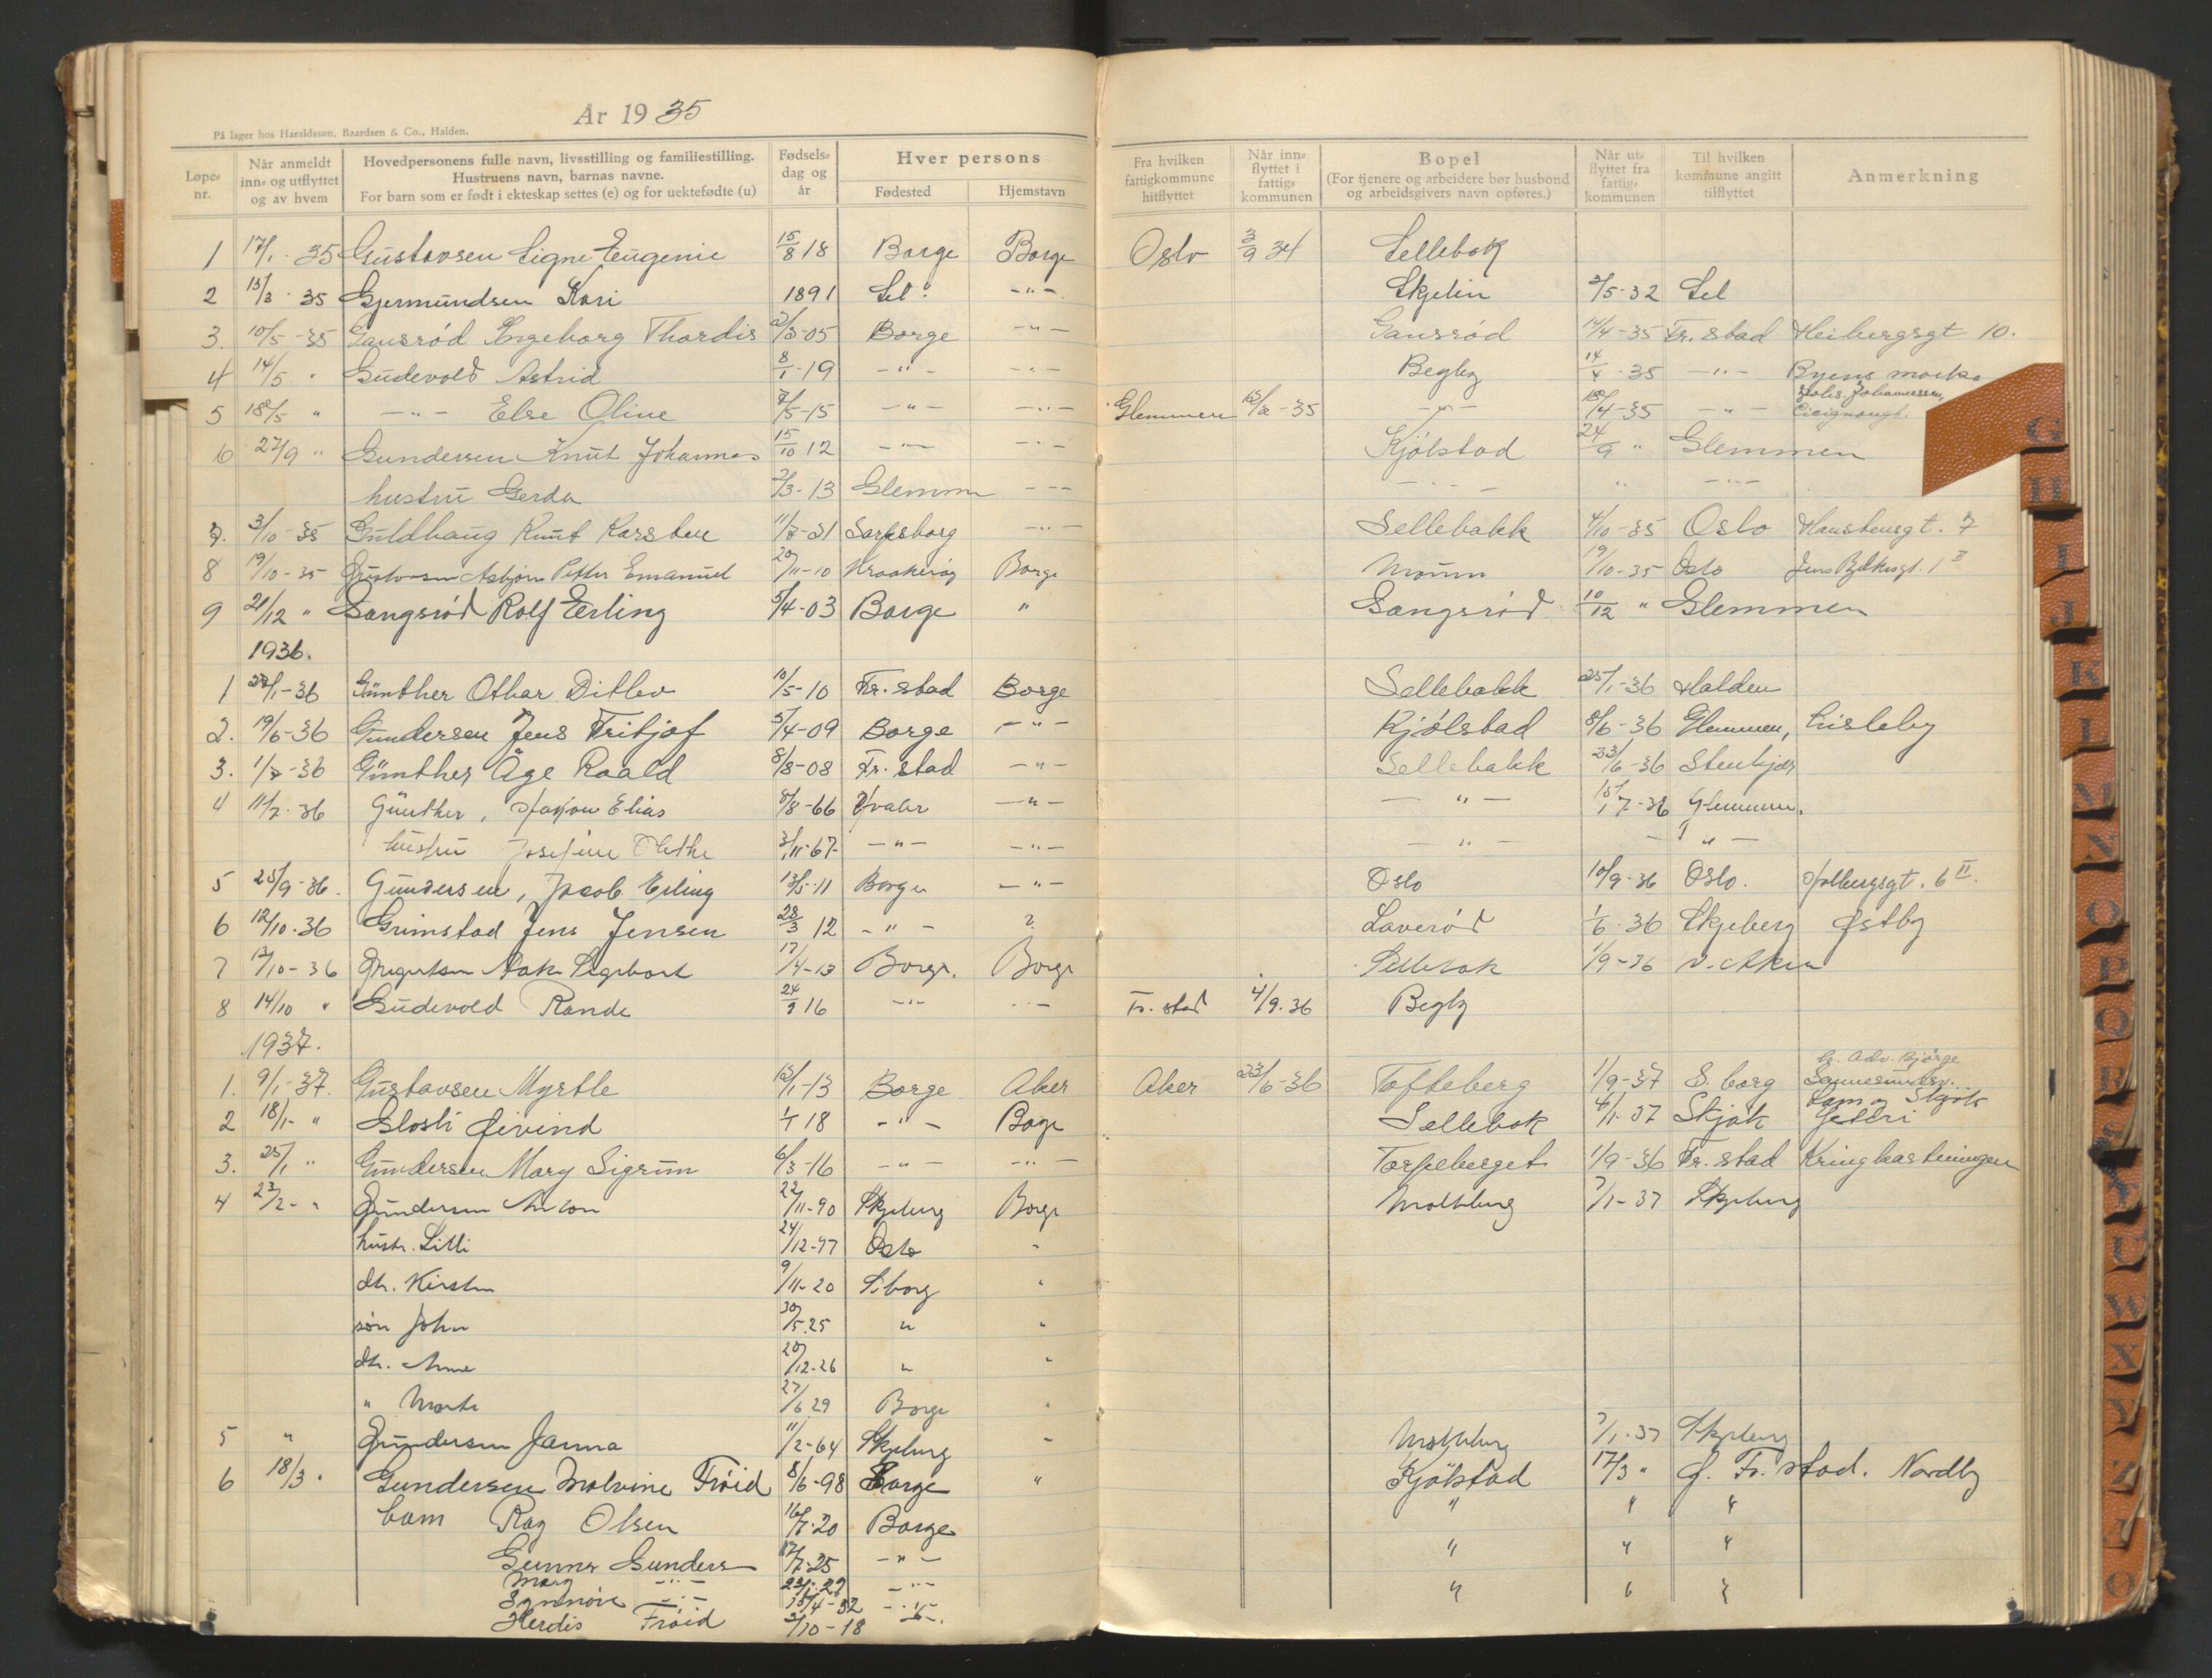 År 1935
På lager hos Haraldssøn, Baardsen & Co., Halden.
Løpe-nr. | Når anmeldt inn- og utflyttet og av hvem | Hovedpersonens fulle navn, livsstilling og familiestilling. Hustruens navn, barnas navne. For barn som er født i ekteskap settes (e) og for uektefødte (u) | Fødsels-dag og år | Hver persons Fødested | Hjemstavn | Fra hvilken fattigkommune hitflyttet | Når inn-flyttet i fattig-kommunen | Bopel (For tjenere og arbeidere bør husbond og arbeidsgivers navn opføres.) | Når ut-flyttet fra fattig-kommunen | Til hvilken kommune angitt tilflyttet | Anmerkning
1 17/1 35 Gustavsen Signe Eugenie 15/8 18 Borge Borge Oslo 3/9 34 Sellebok
2 13/3 35 Gjermundsen Kari 1891 Sel -"- Skjelin 3/5-32 Sel
3. 10/5-35 Gansrød Ingeborg Thordis 2/5-05 Borge -"- Gansrød 14/4-35 Fr.stad Heibergsgt 10.
4 14/5 " Gudevold Astrid 8/1-19 -"- -"- Begby 14/4-35 -"- Byens marka
5 18/5 " -"- Else Oline 7/5-15 -"- -"- Glemmen -35 -"- /4-35 -"- Johs. Johannessen,
6 27/9 " Gundersen Knut Johannes 15/10 12 -"- -"- Kjølstad 24/9 " Glemmen
hustru Gerda 2/3-13 Glemmen -"- -"- " -"-
7. 3/10-35 Guldhaug Knut Karsten 11/7-21 Sarpsborg -"- Sellebakk 4/10-35 Oslo Haustensgt. 7
8 19/10-35 Gustavsen Asbjørn Petter Emanuel 20/11-10 Kraakerøy Borge Moum 19/10-35 Oslo Jens Bjelkesgt. 1 II
9 21/12 " Gangsrød Rolf Erling 5/4-03 Borge " Gangsrød 10/12 " Glemmen
1936.
1 27/1-36 Günther Othar Ditlev 10/5-10 Fr.stad Borge Sellebakk 25/1-36 Halden
2. 19/6-36 Gundersen Jens Fritjof 5/4-09 Borge -"- Kjølstad 8/6-36 Glemmen, Lisleby
3. 1/7-36 Günther Åge Roald 8/8-08 Fr.stad -"- Sellebakk 23/6-36 Stenkjær
4 11/7-36 Günther, Elias 8/8-66 Hvaler -"- -"- 15/7-36 Glemmen.
hustru Josefine Olethe 3/11-67 -"- -"- -"- -"-
5 25/9-36. Gundersen, Jacob Erling 13/5-11 Borge -"- Oslo 10/9-36 Oslo. Holbergsgt. 6 II.
6 12/10-36 Grimstad Jens Jensen 28/3 12 -"- ? Laverød 1/6-36 Skjeberg Østby
7 12/10-36 Sigebort 17/4-13 Borge. Borge Sellebak 1/9-36 V. Aker
8 14/10 " Gudevold Randi 24/9 16 -"- -"- Fr.stad 4/9-36 Begby
1937.
1. 9/1-37. Gustavsen Myrtle 13/1-13 Borge Aker Aker 23/6-36 Tofteberg 1/9-37 S.borg Adv. Bjørge
2 18/1- " Glosli Øivind 1/1 18 -"- Borge Sellebok 4/1-37 Skjåk Skjåk
3. 25/1 " Gundersen Mary Sigrun 6/3-16 -"- -"- Torpeberget 1/9-36 Fr.stad Kringkastningen
4 23/2- " Gundersen Anton 22/11-90 Skjeberg Borge Moltheberg 7/1-37 Skjeberg
hustr. Lilli 24/12-97 Oslo "
dtr. Kirsten 9/11-20 S.borg "
søn John 30/5-25 " "
dtr. Anne 20/12-26 " "
" Marta 27/6 29 Borge "
5 " Gundersen Janna 11/2-64 Skjeberg " Moltheberg 7/1-37 Skjeberg
6 18/3 " Gundersen Malvine Frøid 8/6-98 Borge " Kjølstad 17/3 " Gl. Fr.stad. Nordby
barn Roy Olsen 16/7-20 Borge " " "
Gunnar Gunders 17/7-25 -"- " " "
Mary -"- -"-
Synnøve -"- 15/4-32 -"- " " "
Herdis Frøid 2/10-18 -"-
G H I J K L M N O P Q R S T U V W X Y Z Æ Ø